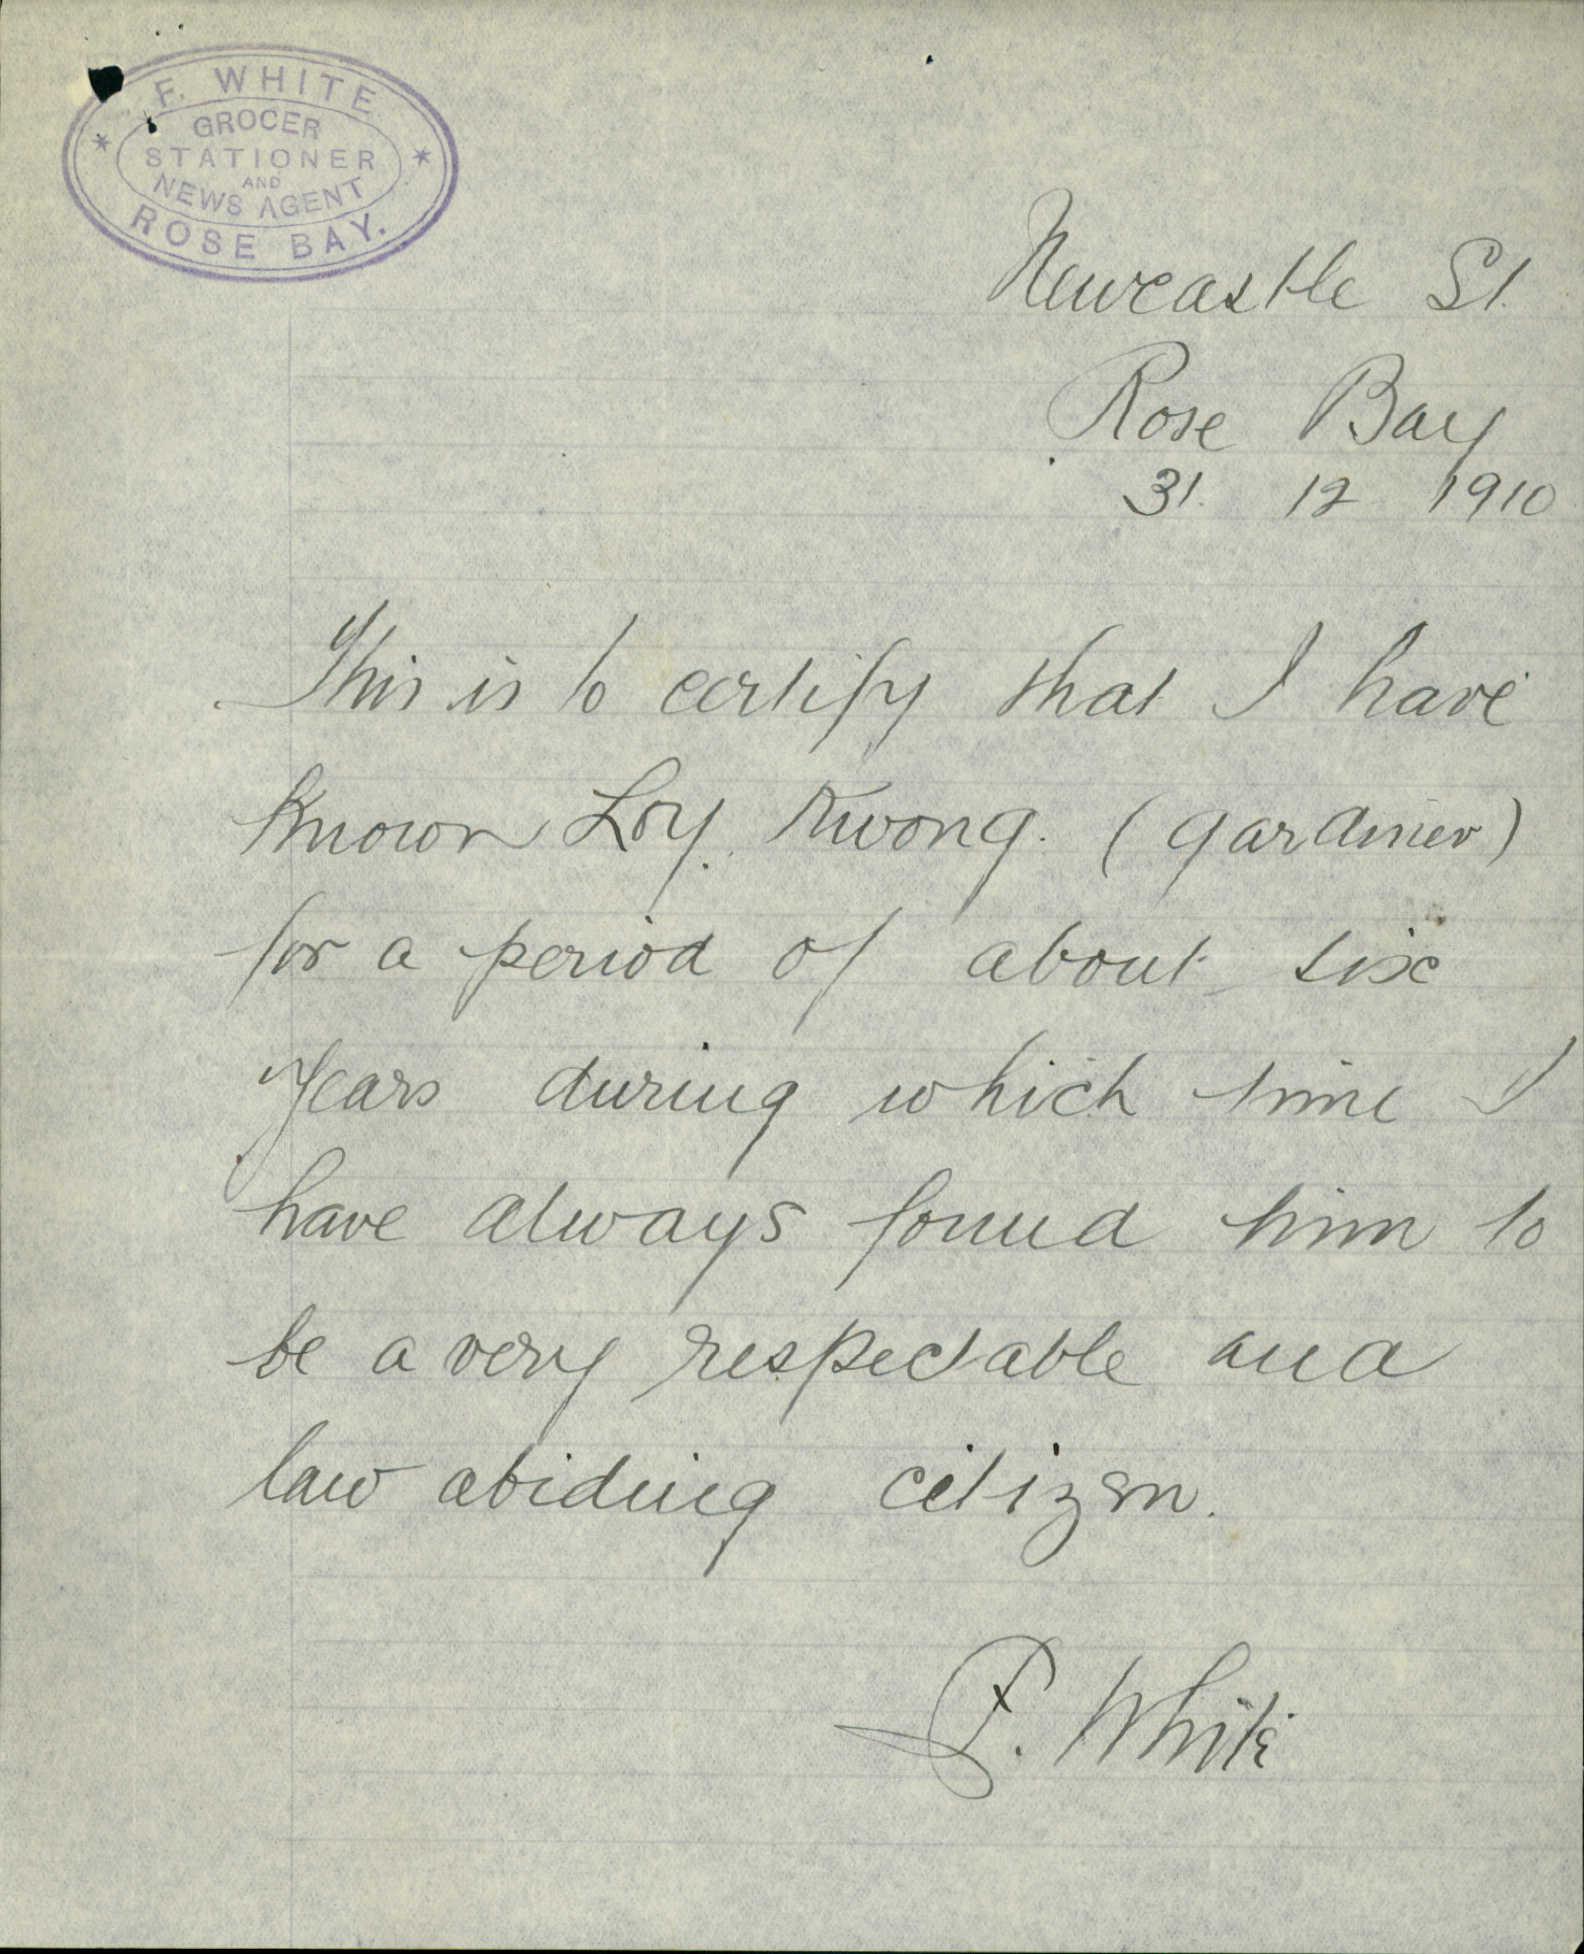 F. WHITE
GROCER
STATIONER
AND
NEWS AGENT
ROSE BAY.
Newcastle St.
Rose Bay
31. 12 1910
This is to certify that I have
known Loy. Kwong. (gardiner)
for a period of about six
years during which time I
have always found him to
be a very respectable and
law abiding citizen.
F. White